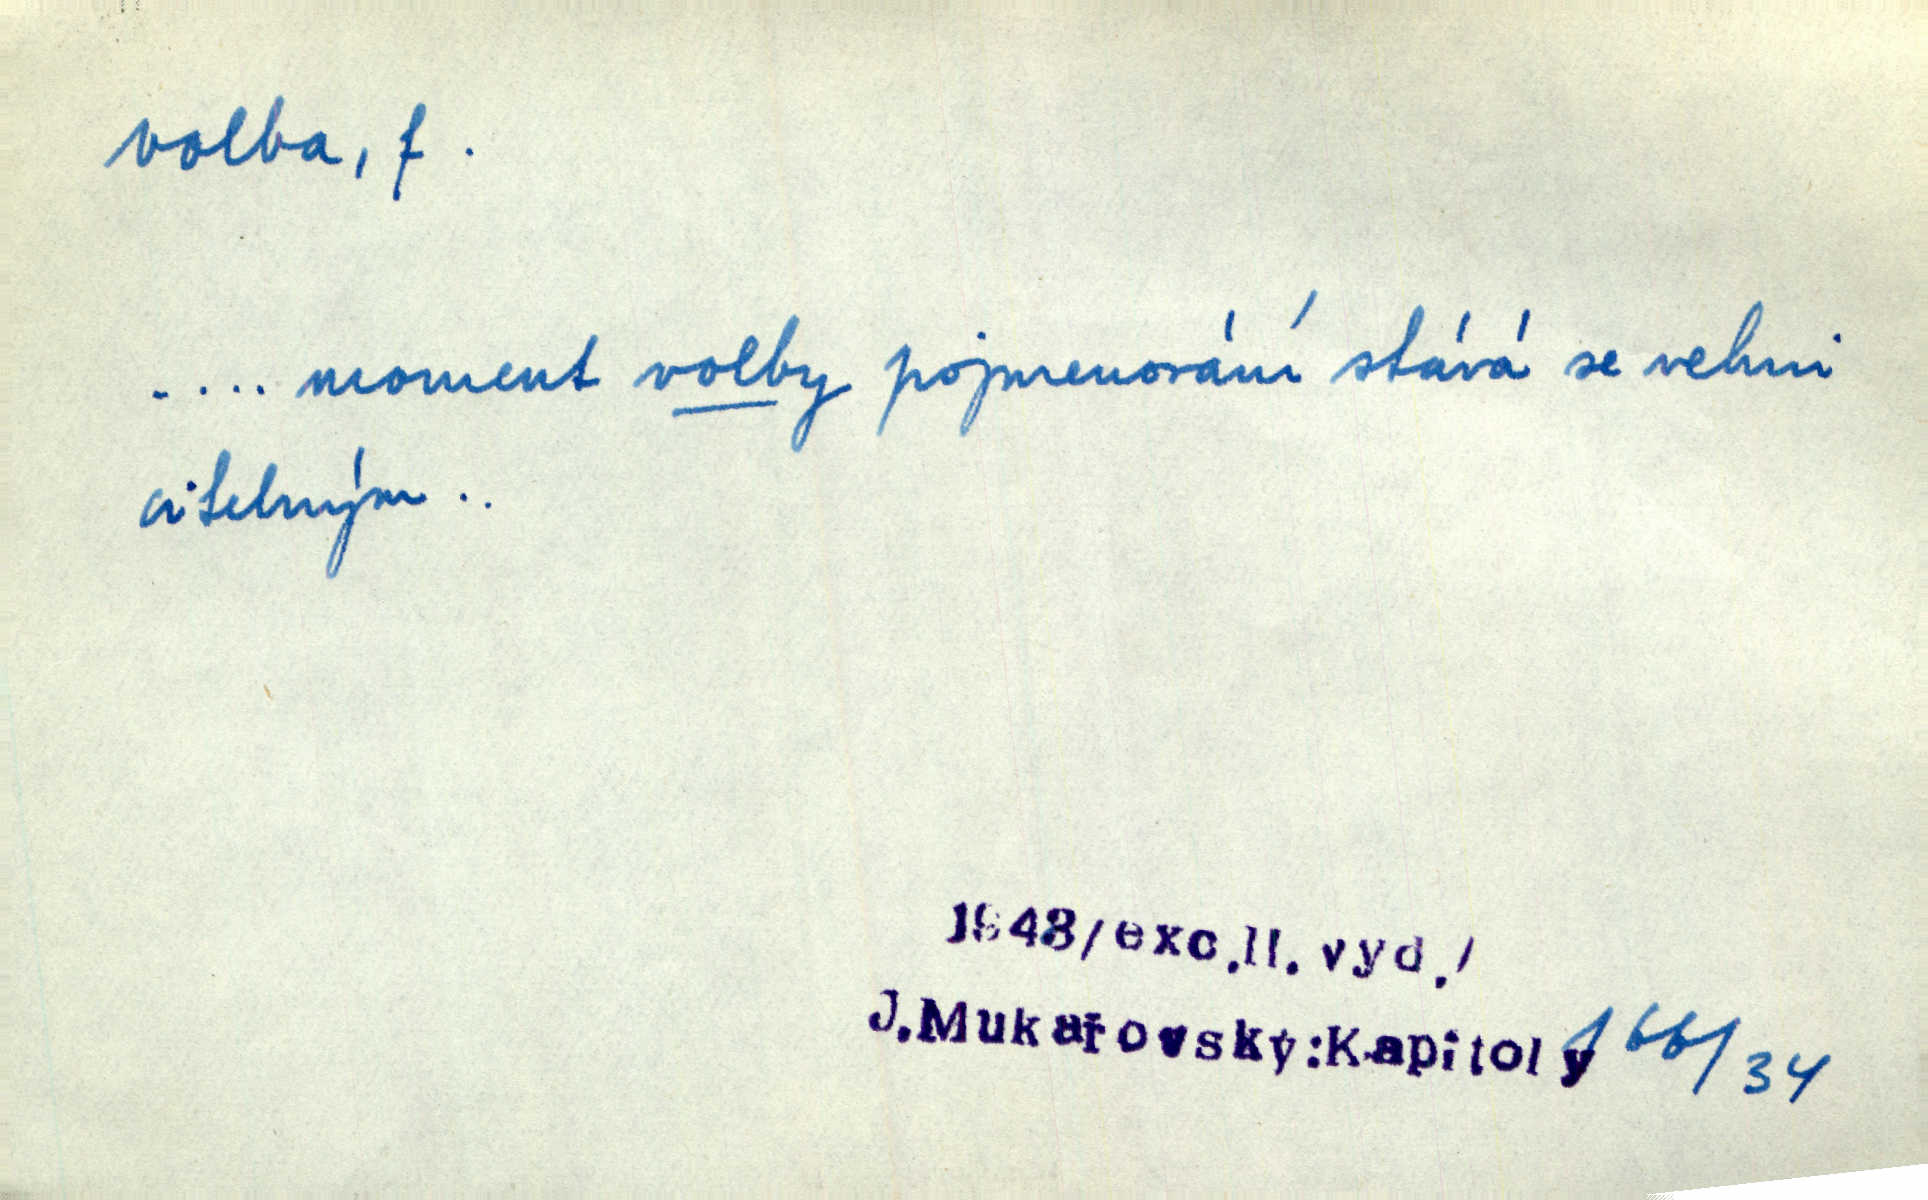 volba, f.
.... moment volby pojmenování stává se velmi
citelným ..
1948/exc.II. vyd./
J.Mukařovský:Kapitoly 166/34